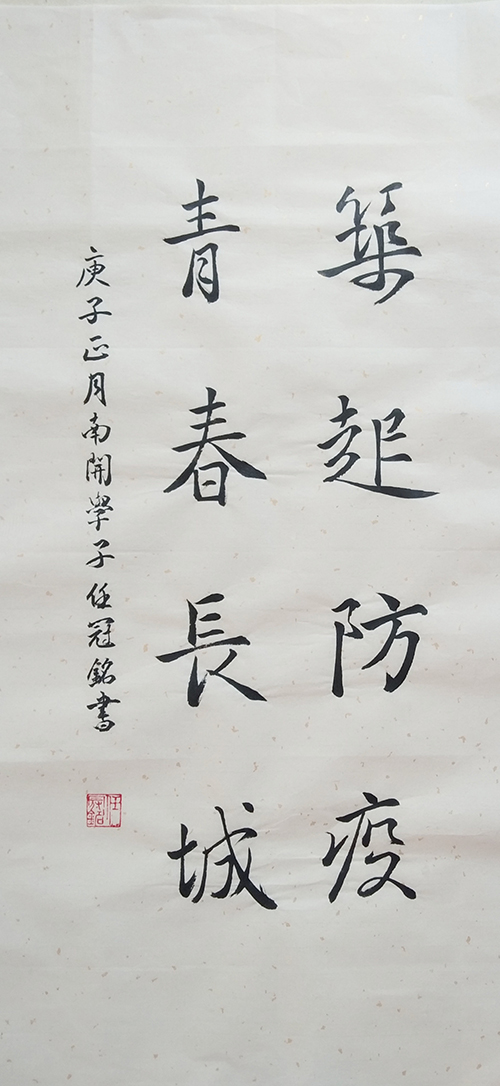 築起防疫
青春長城
庚子正月南開學子任冠銘書
任冠銘